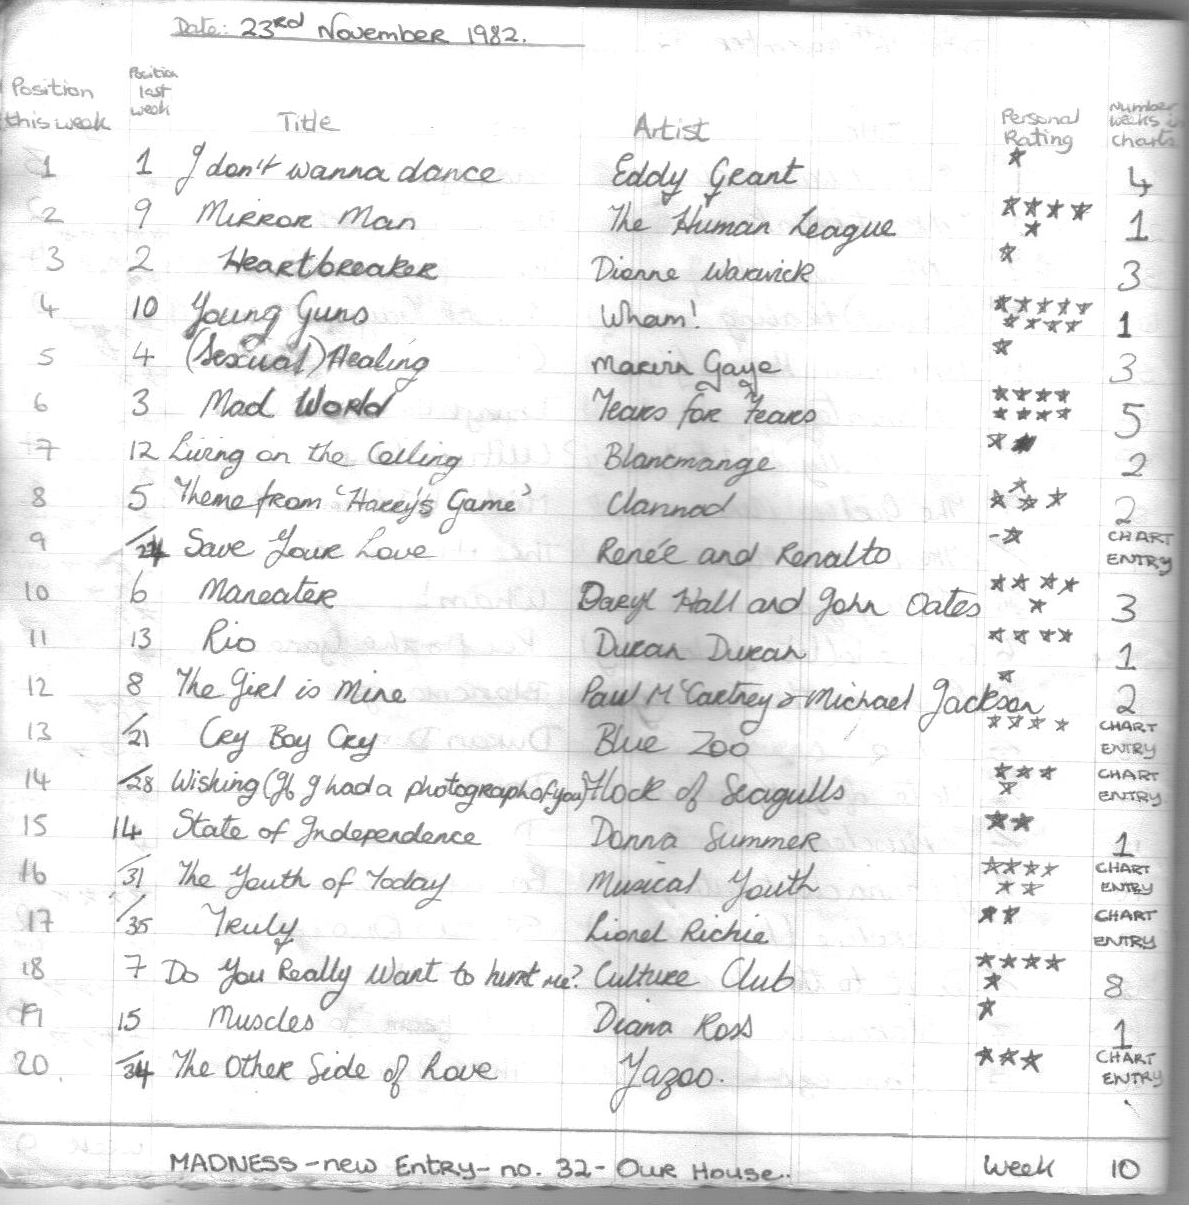 Date: 23rd November 1982.
Position this week Position last week Title Artist Personal Rating Number weeks in charts
1 1 I don't wanna dance Eddy Grant * 4
2 9 Mirror Man The Human League ***** 1
3 2 Heartbreaker Dionne Warwick * 3
4 10 Young Guns Wham! ********* 1
5 4 (Sexual) Healing Marvin Gaye * 3
6 3 Mad World Tears for Fears ******** 5
7 12 Living on the Ceiling Blancmange * 2
8 5 Theme from 'Harry's Game' Clannad **** 2
9 /24 Save Your Love Renée and Renalto -* CHART ENTRY
10 6 Maneater Daryl Hall and John Oates ***** 3
11 13 Rio Duran Duran **** 1
12 8 The Girl is Mine Paul McCartney & Michael Jackson * 2
13 /21 Cry Boy Cry Blue Zoo **** CHART ENTRY
14 /28 Wishing (If I had a photograph of you) Flock of Seagulls **** CHART ENTRY
15 14 State of Independence Donna Summer ** 1
16 /31 The Youth of Today Musical Youth ****** CHART ENTRY
17 /35 Truly Lionel Richie ** CHART ENTRY
18 7 Do You Really Want to hurt me? Culture Club ***** 8
19 15 Muscles Diana Ross * 1
20. /34 The Other Side of Love Yazoo. *** CHART ENTRY
MADNESS - new Entry - no. 32 - Our House.. Week 10